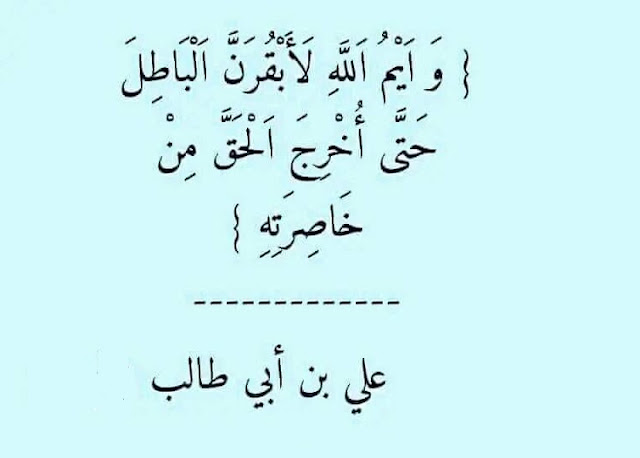 { وَ اَيْمُ اَللَّهِ لَأَبْقُرَنَّ اَلْبَاطِلَ
حَتَّى أُخْرِجَ اَلْحَقَّ مِنْ
خَاصِرَتِهِ }
-------------
علي بن أبي طالب